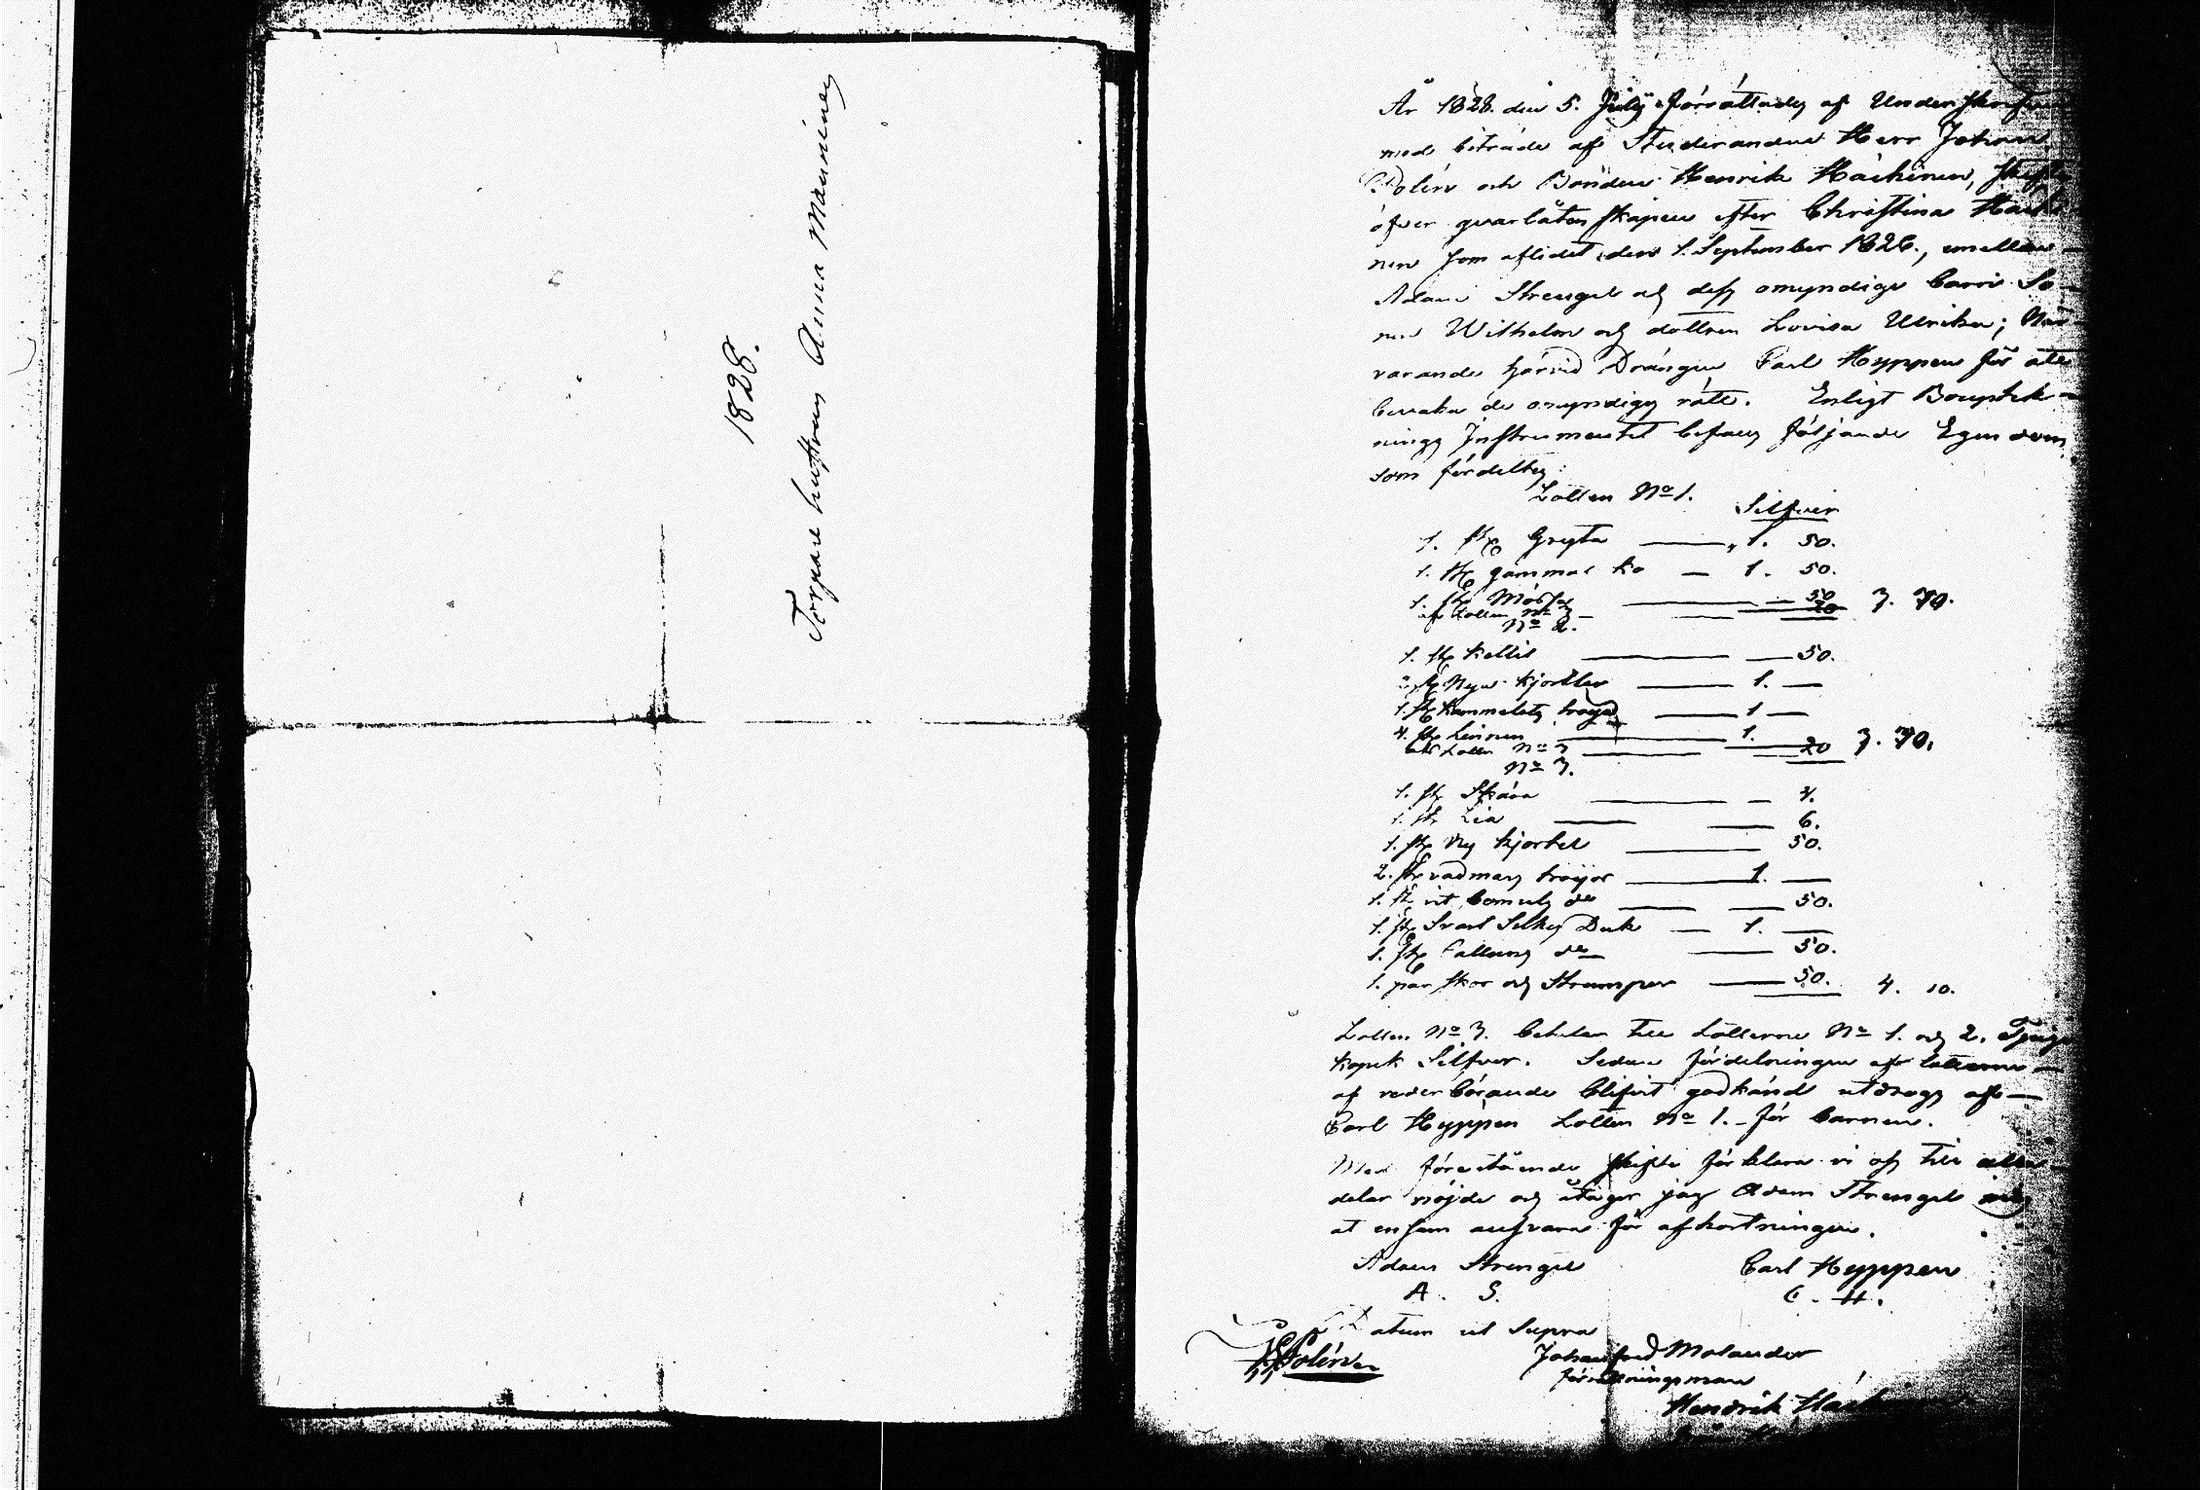 1828.
Torpare hustrun Anna Manninen
År 1828. den 5. July förrättades af Underskrifven
med biträde af Studeranden Herr Johan
Polén och Bonden Henrik Häckinen, skifte
öfver qvarlåtenskapen efter Christina Hack
nen som aflidit den 1. September 1826, emellan
Adam Strengel och dess omyndige barn So-
nen Wilhelm och dottren Lovisa Ulrika; När-
varande härvid Drängen Carl Hyppen för att
bevaka de omyndiges rätt. Enligt Bouptek-
nings Instrumentet befans följande Egendom
som fördeltes:
Lotten No 1. Silfver
1. st. Gryta 1. 50.
1. st. gammal ko 1. 50.
1. st. 50
af Lotten No 3 20 3. 70.
No 2.
1. st. kettil 50.
2. st. Nya kjortlar 1.
1. st. Kammelots tröja 1
4. st. Linnen 1.
af Lotten No 3 20 3. 70.
No 3.
1. st. Skära 4.
1. st. Lia 6.
1. st. Ny kjortel 50.
2. st. vadmans tröijor 1.
1. st. vit bomuls do 50.
1. st. Svart Silkes Duk 1.
1. st. Cattuns do 50.
1. par skor och Strumpor 50. 4. 10.
Lotten No 3. betalar till Lotterne No 1. och 2. Tjugu
kopek Silfver. Sedan fördelningen af lotterne
af vederbörande blifvit godkänd utdrogs af
Carl Hyppen Lotten No 1. för barnen.
Med förestående skifte förklara vi oss till alla
delar nöjde och åtager jag Adam Strengel mig
at ensam ansvara för afkortningen.
Adam Strengel Carl Hyppen
A. S. C. H.
Datum ut Supra
Polén Johan fred Molander
förrättningsman
Hendrik